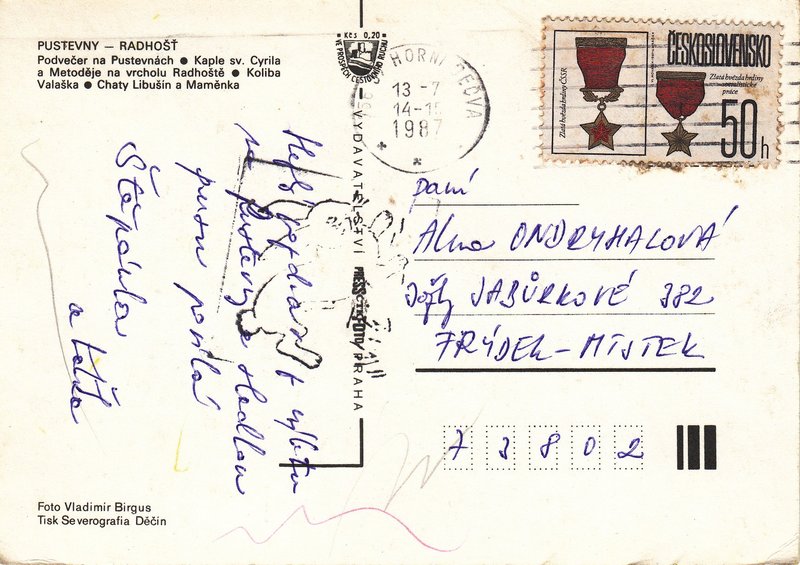 PUSTEVNY — RADHOŠŤ
Podvečer na Pustevnách ● Kaple sv. Cyrila
a Metoděje na vrcholu Radhoště ● Koliba
Valaška ● Chaty Libušín a Maměnka
Kčs 0,20
VE PROSPĚCH CESTOVNÍHO RUCHU
HORNÍ BEČVA
13 -7
14-15
1987
Zlatá hvězda hrdiny ČSSR
ČESKOSLOVENSKO
Zlatá hvězda hrdiny
socialistické
práce
50h
VYDAVATELSTVÍ PRESSFOTO PRAHA
Hezký pozdrav z výletu
na Pustevny a sladkou
pusu posílá
Štěpánka
a táta
Paní
Alena ONDRYHALOVÁ
Jožky JABŮRKOVÉ 382
FRÝDEK-MÍSTEK
73802
Foto Vladimír Birgus
Tisk Severografia Děčín